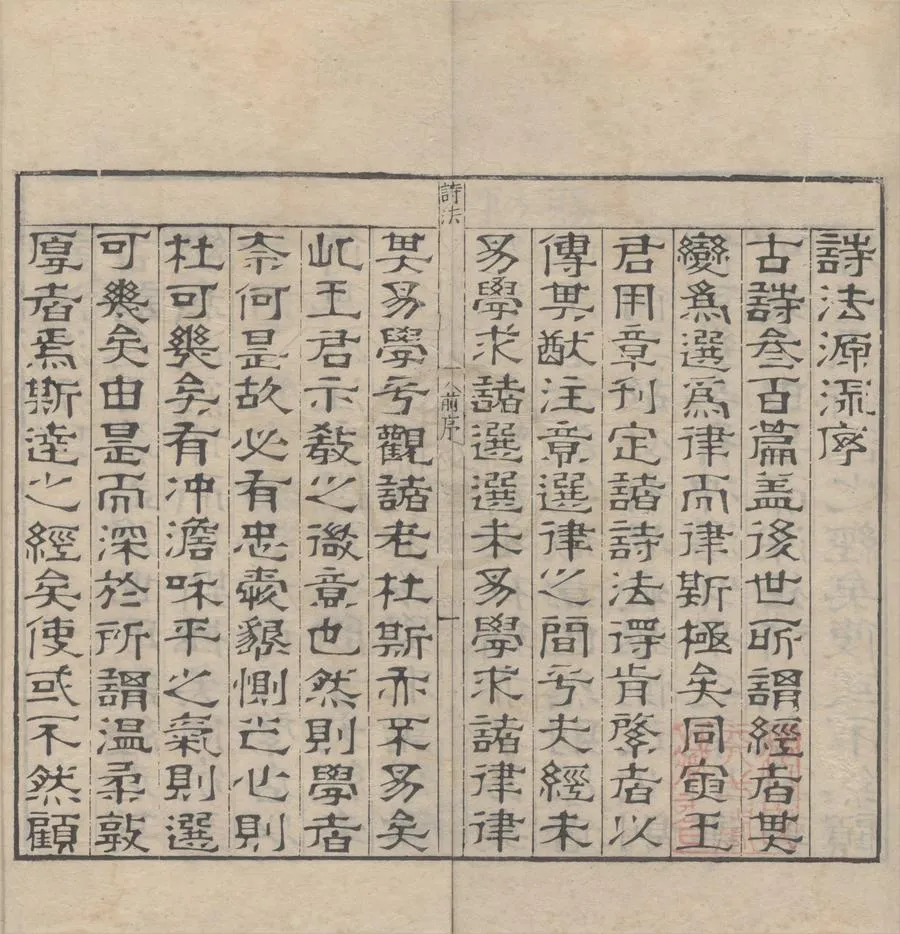 詩法源流序
古詩叁百篇盖後世所謂經者其
變爲選爲律而律斯極矣同寅王
君用章刋定諸詩法得肯綮者以
傳其猷注意選律之間乎夫經未
易學求諸選選未易學求諸律律
詩法
前序
一
其易學乎觀諸老杜斯亦不易矣
此王君示教之微意也然則學者
柰何是故必有忠懿懇惻之心則
杜可幾矣有冲澹咊平之氣則選
可幾矣由是而深於所謂温柔敦
厚者焉斯達之經矣使或不然顧